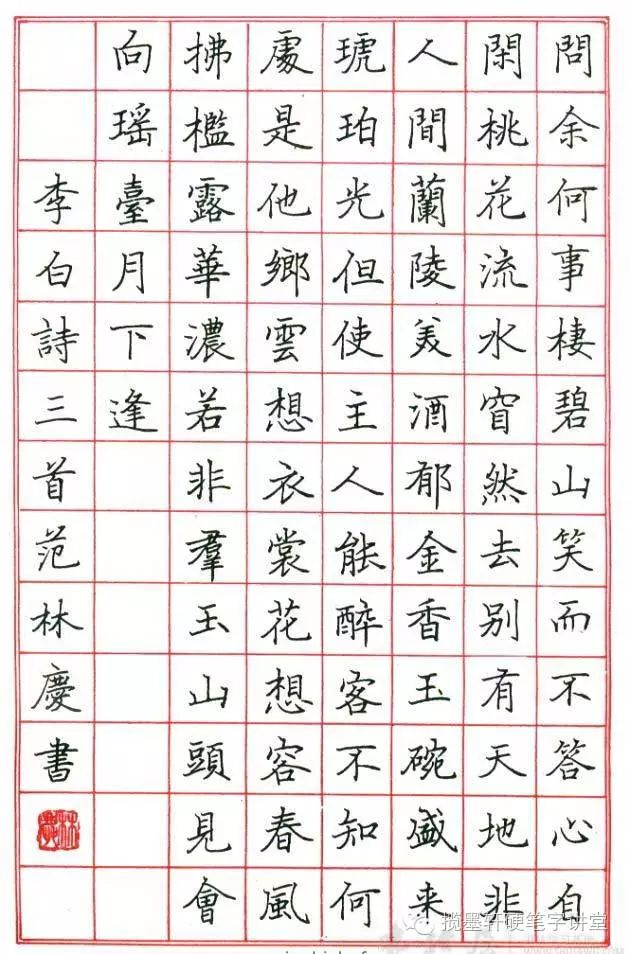 問余何事棲碧山笑而不答心自
閑桃花流水窅然去别有天地非
人間蘭陵美酒郁金香玉碗盛来
琥珀光但使主人能醉客不知何
處是他鄉雲想衣裳花想容春風
拂檻露華濃若非羣玉山頭見會
向瑶臺月下逢
李白詩三首范林慶書
揽墨轩硬笔字讲堂